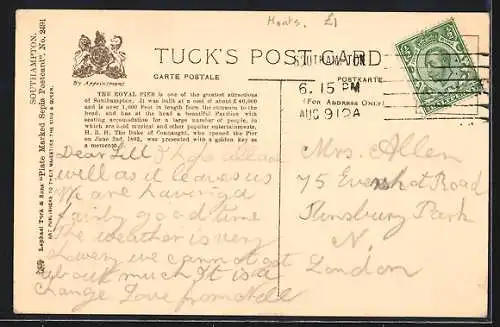 Hants. £1
TUCK'S POST CARD
CARTE POSTALE
POSTKARTE
(For Address Only)
By Appointment
SOUTHAMPTON
6.15 PM
AUG 9 12A
SOUTHAMPTON.
Raphael Tuck & Sons' "Plate Marked Sepia Postcard" No. 2491
ART PUBLISHERS TO THEIR MAJESTIES THE KING & QUEEN.
THE ROYAL PIER is one of the greatest attractions
of Southampton. It was built at a cost of about £40,000
and is over 1,000 feet in length from the entrance to the
head, and has at the head a beautiful Pavilion with
seating accommodation for a large number of people, in
which are held musical and other popular entertainments.
H. R. H. The Duke of Connaught, who opened the Pier
on June 2nd, 1892, was presented with a golden key as
a memento.
Dear Lill
well as it leaves us
We are having a
fairly good time
the weather is very
showery we cannot get
about much It is a
change Love from Nell
Mrs. Allen
75 Evershot Road
Finsbury Park
N.
London